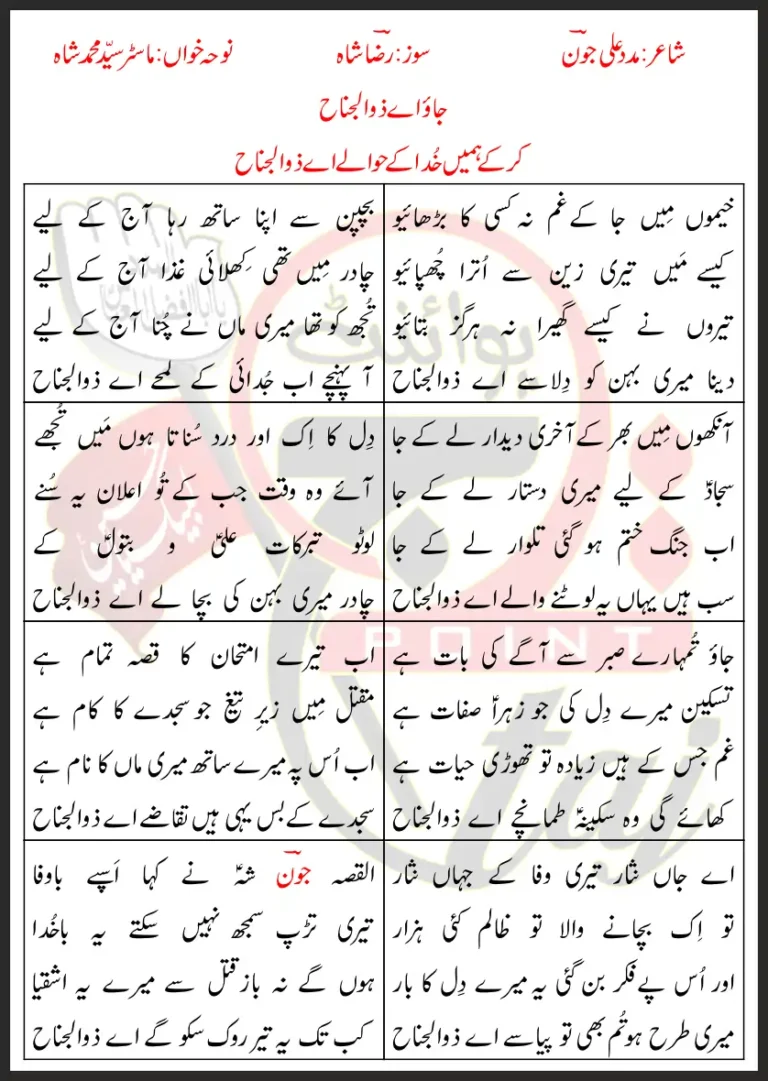 شاعر: مدد علی جونؔ سوز: رضاؔ شاہ نوحہ خواں: ماسٹر سیّد محمد شاہ
جاؤ اے ذوالجناح
کر کے ہمیں خُدا کے حوالے اے ذوالجناح
خیموں مِیں جا کے غم نہ کسی کا بڑھائیو
کیسے مَیں تیری زین سے اُترا چُھپائیو
تیروں نے کیسے گھیرا نہ ہرگز بتائیو
دینا میری بہن کو دِلاسے اے ذوالجناح
بچپن سے اپنا ساتھ رہا آج کے لیے
چادر مِیں تھی کِھلائی غذا آج کے لیے
تُجھ کو تھا میری ماں نے چُنا آج کے لیے
آ پہنچے اب جُدائی کے لمحے اے ذوالجناح
آنکھوں مِیں بھر کے آخری دیدار لے کے جا
سجادؑ کے لیے میری دستار لے کے جا
اب جنگ ختم ہو گئی تلوار لے کے جا
سب ہیں یہاں یہ لوٹنے والے اے ذوالجناح
دِل کا اِک اور درد سُناتا ہوں مَیں تُجھے
آئے وہ وقت جب کے تُو اعلان یہ سُنے
لوٹو تبرکات علیؑ و بتولؑ کے
چادر میری بہن کی بچا لے اے ذوالجناح
جاؤ تُمہارے صبر سے آگے کی بات ہے
تسکین میرے دِل کی جو زہراؑ صفات ہے
غم جس کے ہیں زیادہ تو تھوڑی حیات ہے
کھائے گی وہ سکینہؑ طمانچے اے ذوالجناح
اب تیرے امتحان کا قصہ تمام ہے
مقتل مِیں زیرِ تیغ جو سجدے کا کام ہے
اب اُس پہ میرے ساتھ میری ماں کا نام ہے
سجدے کے بس یہی ہیں تقاضے اے ذوالجناح
اے جاں نثار تیری وفا کے جہاں نثار
تو اِک بچانے والا تو ظالم کئی ہزار
اور اُس پے فکر بن گئی یہ میرے دِل کا بار
میری طرح ہو تُم بھی تو پیاسے اے ذوالجناح
القصہ جونؔ شہؑ نے کہا اَسپے باوفا
تیری تڑپ سمجھ نہیں سکتے یہ باخُدا
ہوں گے نہ باز قتل سے میرے یہ اشقیا
کب تک یہ تیر روک سکو گے اے ذوالجناح
پوائنٹ
POINT
taj